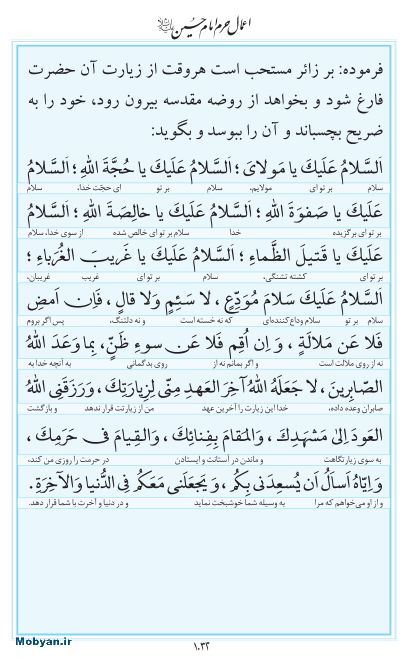 اعمال حرم امام حسین علیه‌السلام
فرموده: بر زائر مستحب است هروقت از زیارت آن حضرت
فارغ شود و بخواهد از روضه مقدسه بیرون رود، خود را به
ضریح بچسباند و آن را ببوسد و بگوید:
اَلسَّلامُ عَلَیکَ یا مَولایَ؛ اَلسَّلامُ عَلَیکَ یا حُجَّةَ اللهِ؛ اَلسَّلامُ
سلام بر تو ای مولایم، سلام بر تو ای حجّت خدا، سلام
عَلَیکَ یا صَفوَةَ اللهِ؛ اَلسَّلامُ عَلَیکَ یا خالِصَةَ اللهِ؛ اَلسَّلامُ
بر تو ای برگزیده خدا سلام بر تو ای خالص شده از سوی خدا، سلام
عَلَیکَ یا قَتیلَ الظَّماءِ؛ اَلسَّلامُ عَلَیکَ یا غَریبَ الغُرَباءِ؛
بر تو ای کشته تشنگی، سلام بر تو ای غریب غریبان،
اَلسَّلامُ عَلَیکَ سَلامَ مُوَدِّعٍ، لا سَئِمٍ وَلا قالٍ، فَاِن اَمضِ
سلام بر تو سلام وداع‌کننده‌ای که نه خسته است و نه دلتنگ، پس اگر بروم
فَلا عَن مَلالَةٍ، وَ اِن اُقِم فَلا عَن سوءِ ظَنٍّ، بِما وَعَدَ اللهُ
نه از روی ملالت است و اگر بمانم نه از روی بدگمانی به آنچه خدا به
الصّابِرینَ، لا جَعَلَهُ اللهُ آخِرَ العَهدِ مِنّی لِزِیارَتِکَ، وَرَزَقَنِی اللهُ
صابران وعده داده، خدا این زیارت را آخرین عهد من از زیارتت قرار ندهد و بازگشت
العَودَ اِلیٰ مَشهَدِکَ، وَالمَقامَ بِفِنائِکَ، وَالقِیامَ فی حَرَمِکَ،
به سوی زیارتگاهت و ماندن در آستانت و ایستادن در حرمت را روزی من کند،
وَ اِیّاهُ اَساَلُ اَن یُسعِدَنی بِکُم، وَ یَجعَلَنی مَعَکُم فِی الدُّنیا وَالآخِرَةِ.
و از او می‌خواهم که مرا به وسیله شما خوشبخت نماید و در دنیا و آخرت با شما قرار دهد.
۱۰۳۲
Mobyan.ir